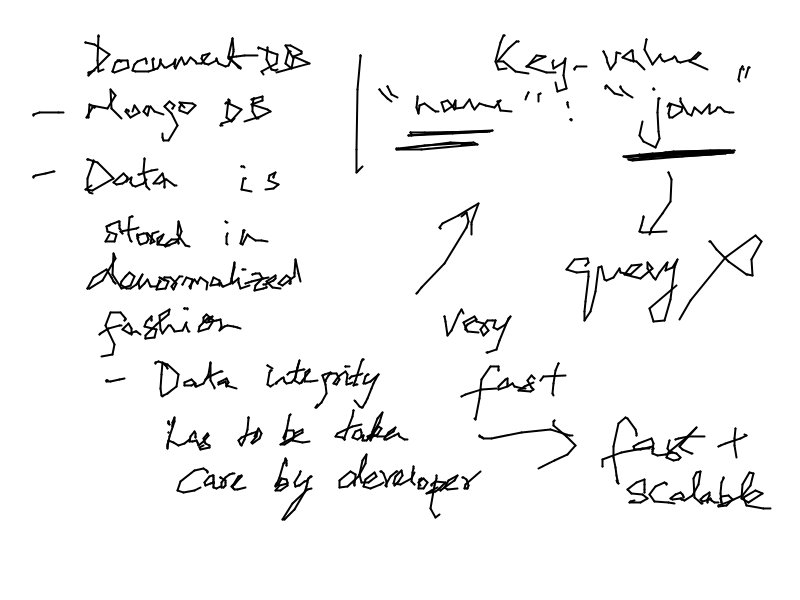 Document DB
- Mongo DB
- Data is
stored in
denormalized
fashion
- Data integrity
has to be taken
care by developer
Key-value
"name" : "john"
query X
very
fast
fast +
scalable